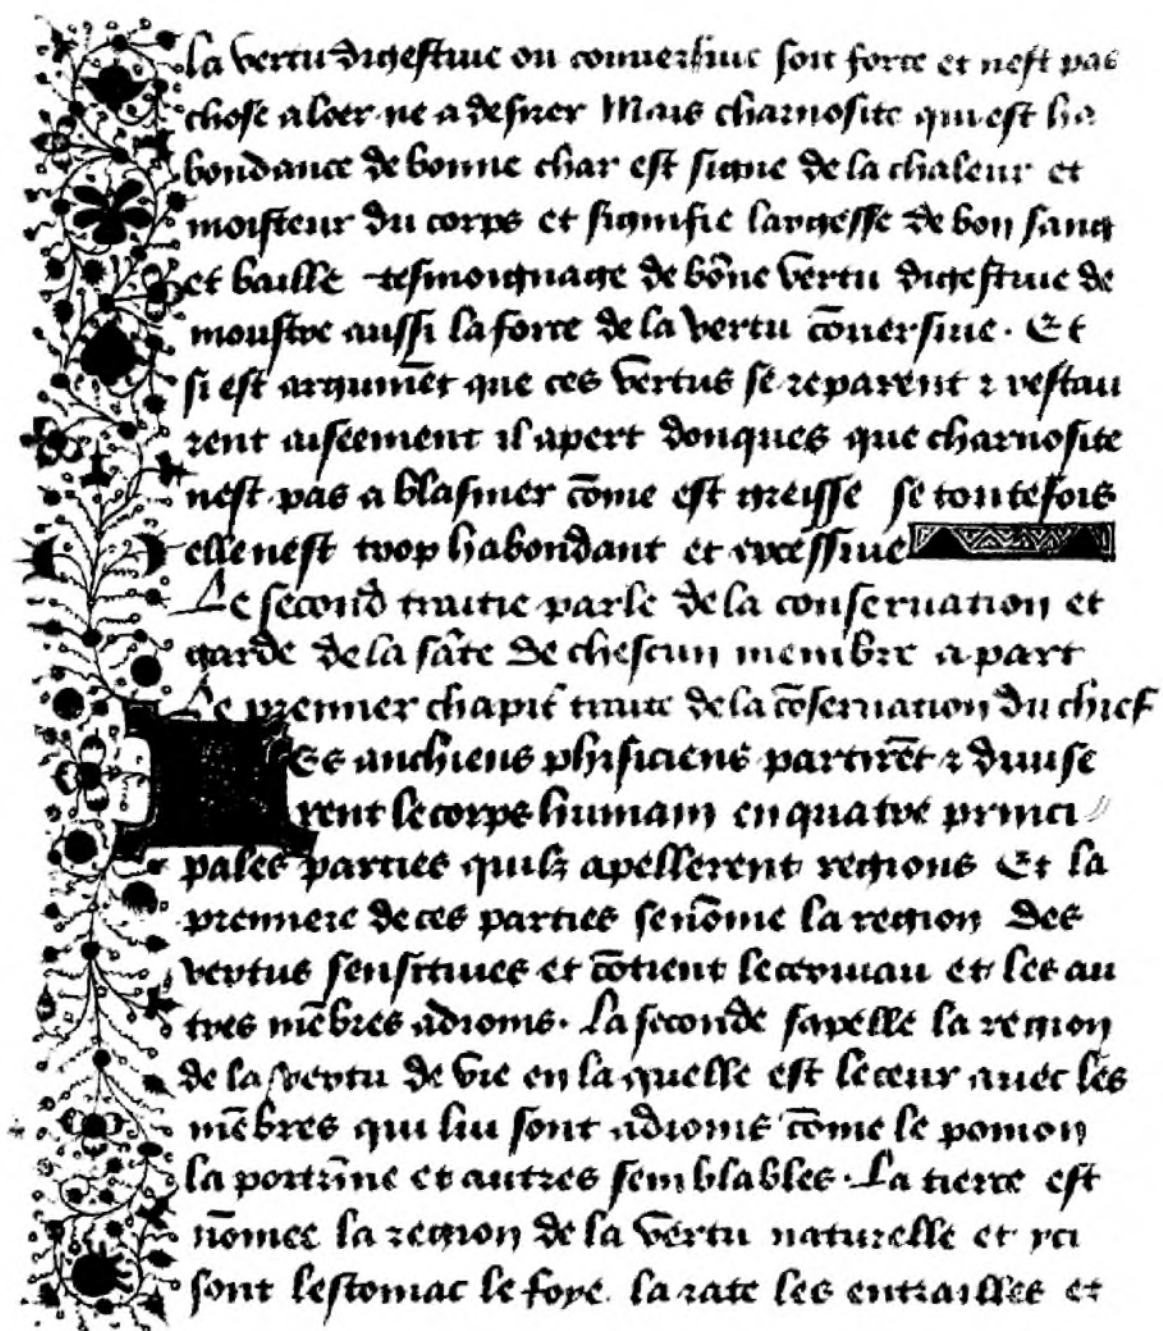 la vertu digestiue ou conuersiue soit forte et nest pas
chose a loer ne a desirer Mais charnosite qui est ha
bondance de bonne char est signe de la chaleur et
moisteur du corps et signifie largesse de bon sang
et baille tesmoignage de bōne vertu digestiue de
moustre aussi la force de la vertu cōuersiue. Et
si est argumēt que ces vertus se reparent ⁊ restau
rent aiseement il apert donques que charnosite
nest pas a blasmer cōme est greisse se toutefois
elle nest trop habondant et excessiue
Le second traitie parle de la conseruation et
garde de la sāte de chescun membre a part
Le premier chapit̄ traite de la cōseruation du chief
Les anchiens phisiciens partirēt ⁊ diuise
rent le corps humain en quatre princi
pales parties quilz apellerent regions Et la
premiere de ces parties se nōme la region des
vertus sensitiues et cōtient le ceruiau et les au
tres mēbres adioins. La seconde sapelle la region
de la vertu de vie en la quelle est le ceur auec les
mēbres qui lui sont adioins cōme le pomon
la portrīne et autres semblables. La tierce est
nōmee la region de la vertu naturelle et yci
sont lestomac le foye. la rate les entrailles et